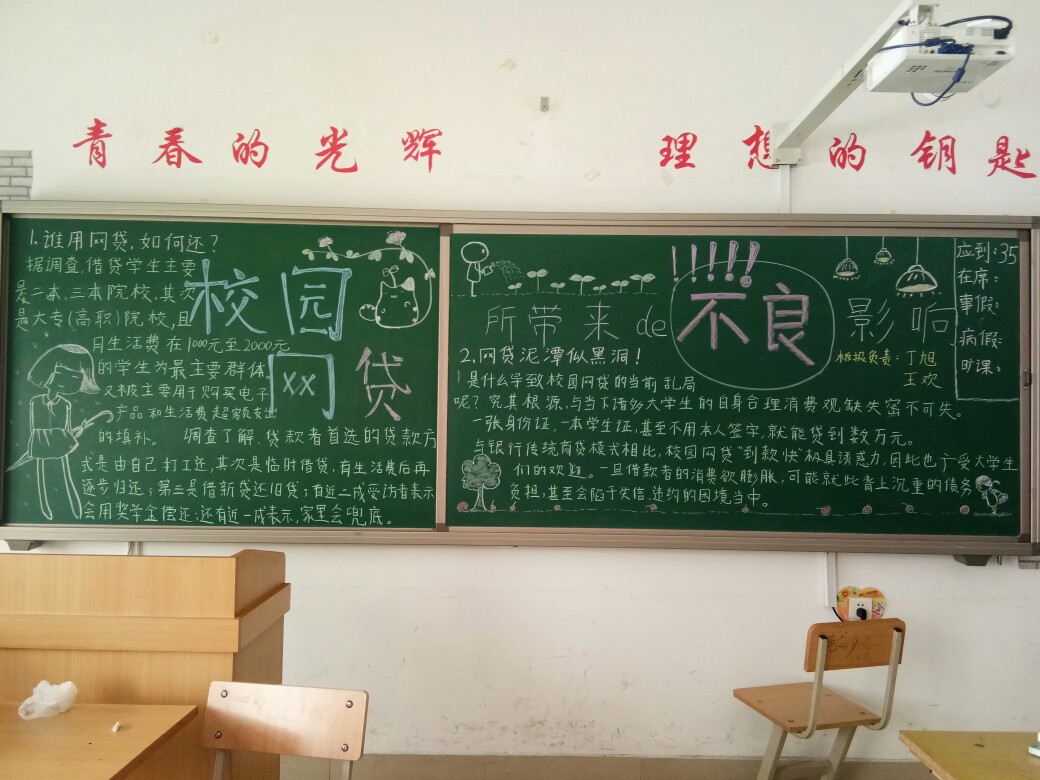 青春的光辉 理想的钥匙
校园网贷
所带来de不良影响
!!!!!
1.谁用网贷,如何还?
据调查,借贷学生主要
是二本、三本院校,其次
是大专(高职)院校,且
月生活费在1000元至2000元
的学生为最主要群体。
又被主要用于购买电子
产品和生活费超额支出
的填补。 调查了解,贷款者首选的贷款方
式是由自己打工还,其次是临时借贷,有生活费后再
逐步归还;第三是借新贷还旧贷;有近二成受访者表示
会用奖学金偿还;还有近一成表示,家里会兜底。
2.网贷泥潭似黑洞!
是什么导致校园网贷的当前乱局
呢?究其根源,与当下诸多大学生的自身合理消费观缺失密不可失。
一张身份证,一本学生证,甚至不用本人签字,就能贷到数万元。
与银行传统商贷模式相比,校园网贷“到款快”极具诱惑力,因此也广受大学生
们的欢迎。一旦借款者的消费欲膨胀,可能就此背上沉重的债务
负担,甚至会陷于失信、违约的困境当中。
板报负责:丁旭
王欢
应到:35
在席:
事假:
病假:
旷课: